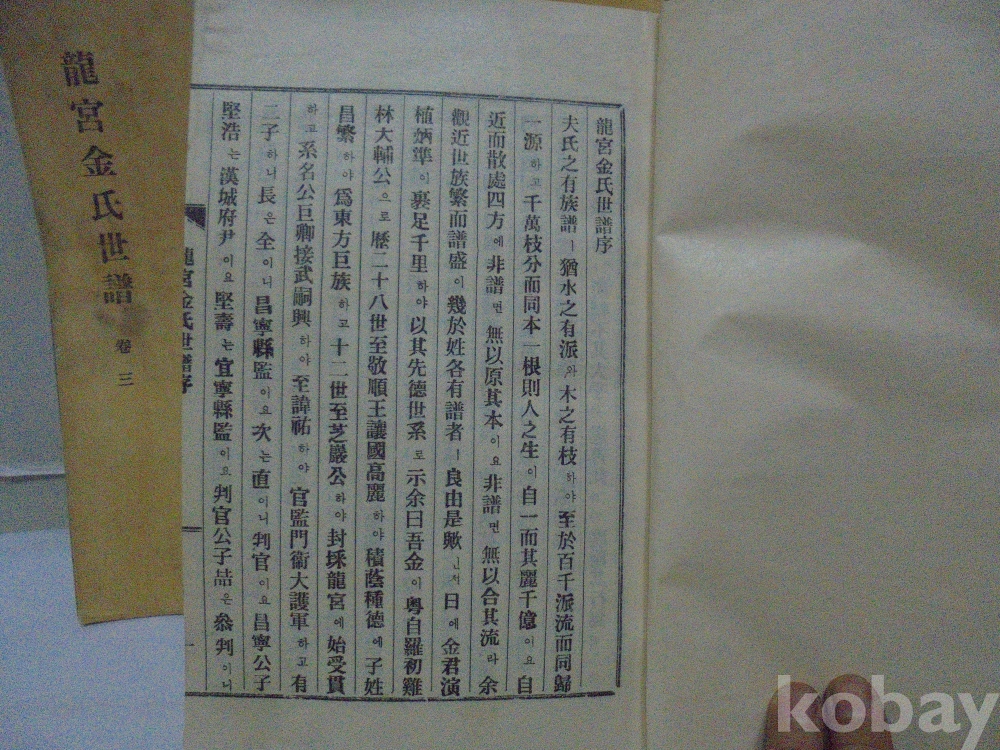 龍宮金氏世譜序
夫氏之有族譜ㅣ猶水之有派와木之有枝하야至於百千派流而同歸
一源하고千萬枝分而同本一根則人之生이自一而其麗千億이요自
近而散處四方에非譜면無以原其本이요非譜면無以合其流라余
觀近世族繁而譜盛이幾於姓各有譜者ㅣ良由是歟인저日에金君演
植炳準이裹足千里하야以其先德世系로示余曰吾金이粤自羅初雞
林大輔公으로歷二十八世至敬順王讓國高麗하야積蔭種德에子姓
昌繁하야爲東方巨族하고十二世至芝巖公하야封埰龍宮에始受貫
하고系名公巨卿接武嗣興하야至諱祐하야官監門衞大護軍하고有
二子하니長은全이니昌寧縣監이요次는直이니判官이요昌寧公子
堅浩는漢城府尹이요堅壽는宜寧縣監이으判官公子喆은叅判이니
龍宮金氏世譜序
一
龍宮金氏世譜 卷三
kobay